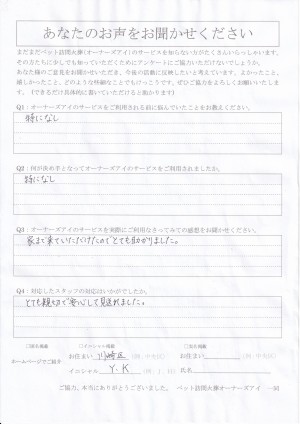 あなたのお声をお聞かせください
まだまだペット訪問火葬(オーナーズアイ)のサービスを知らない方がたくさんいらっしゃいます。
その方たちに少しでも知っていただくためにアンケートにご協力いただけないでしょうか。
あなた様のご意見をお聞かせいただき、今後の活動に反映したいと考えています。よかったこと、
嬉しかったこと、どのような些細なことでもけっこうです。ぜひご協力をよろしくお願いいたします。
(できるだけ具体的に書いていただけると助かります)
Q1:オーナーズアイのサービスをご利用される前に悩んでいたことをお教えください。
特になし
Q2:何が決め手となってオーナーズアイのサービスをご利用されましたか。
特になし
Q3:オーナーズアイのサービスを実際にご利用なさってみての感想をお聞かせください。
家まで来ていただけたのでとても助かりました。
Q4:対応したスタッフの対応はいかがでしたか。
とても親切で安心して見送れました。
□イニシャル掲載
ホームページでご紹介
お住まい 川崎区 (例:中央区) お住まい (例:中央区)
イニシャル Y.K 氏名
ご協力、本当にありがとうございました。 ペット訪問火葬オーナーズアイ